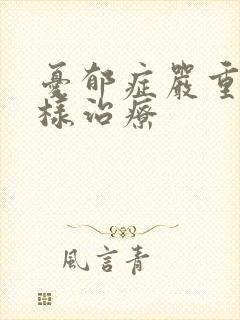 憂郁症嚴重
樣治療
風言青